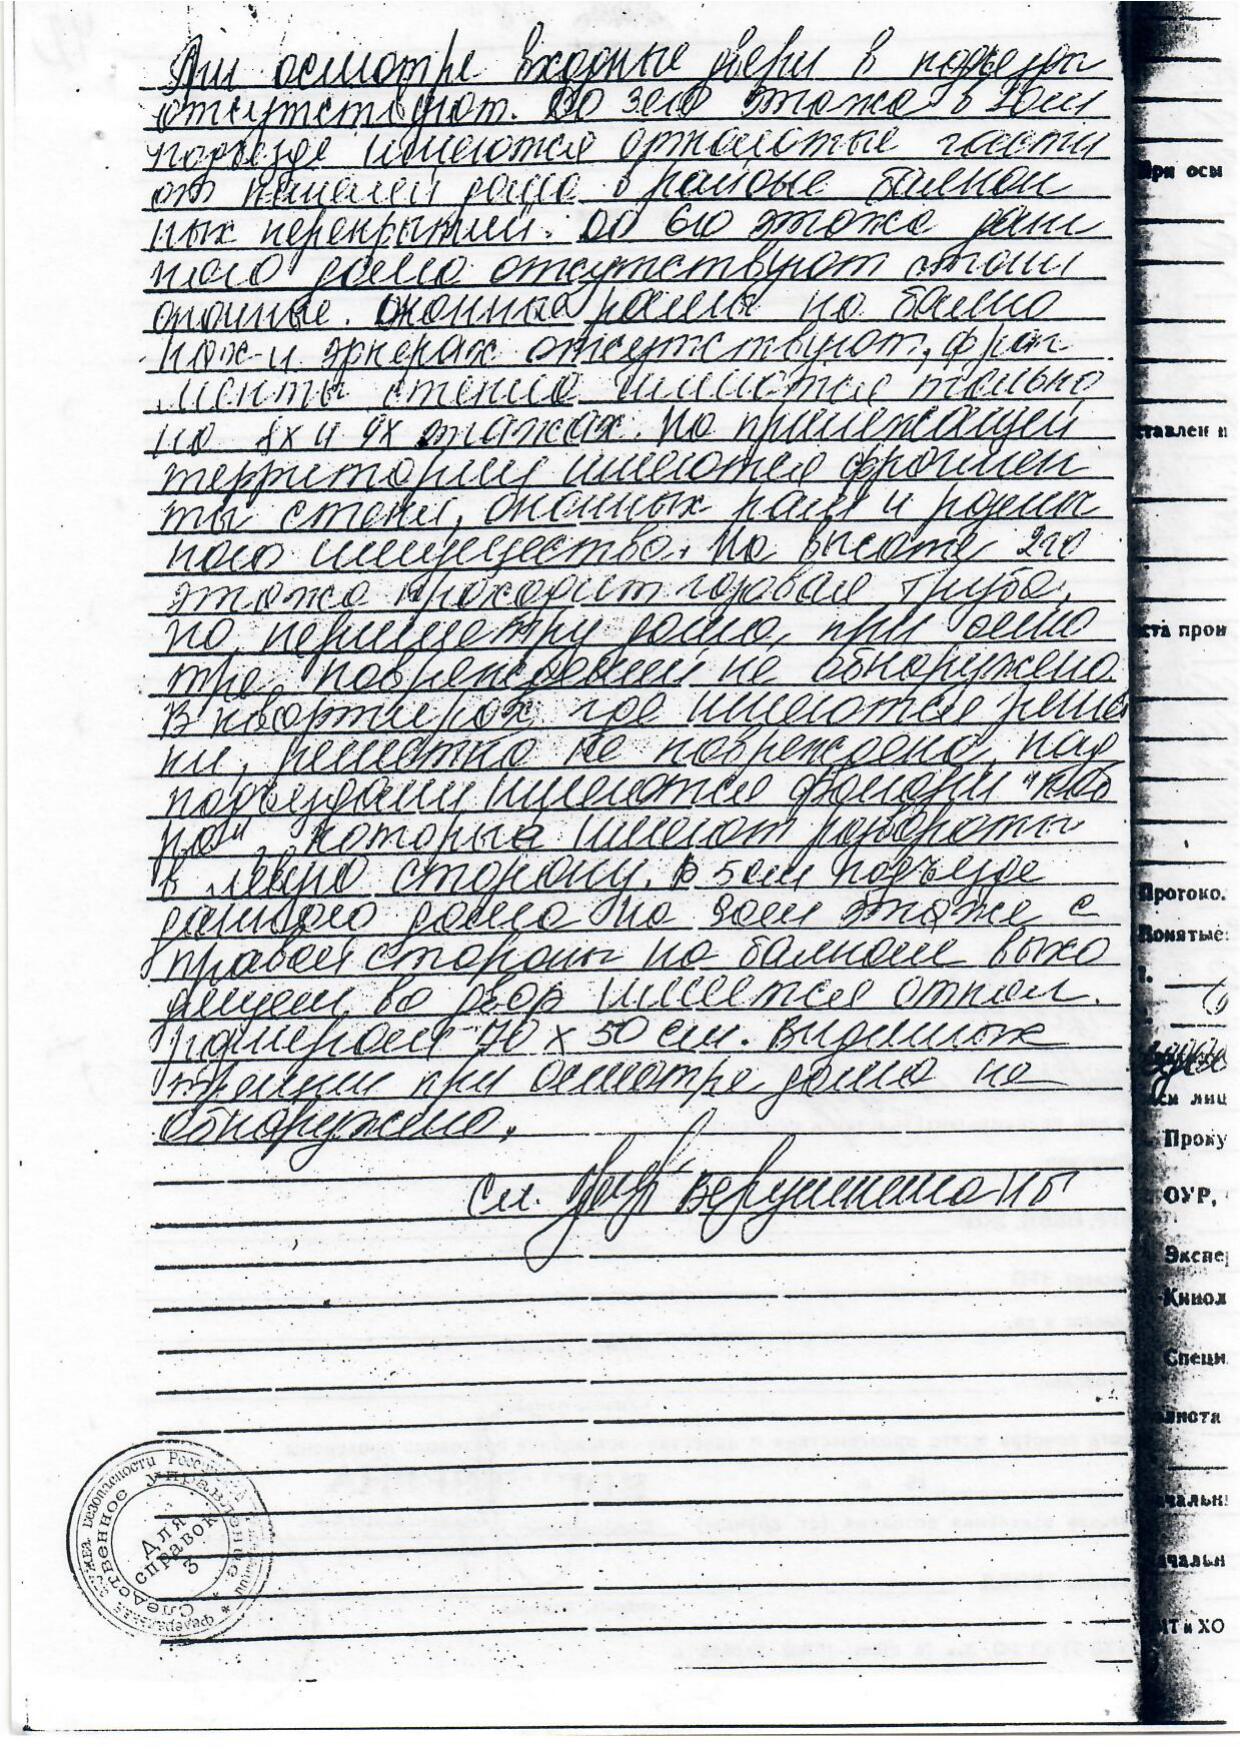 При осмотре входные двери в подъезды
отсутствуют. До 3го этажа в 2ом
подъезде имеются отколотые части
от панелей дома в районе балкон
ных перекрытий. До 6го этажа дан
ного дома отсутствуют
оконные. Оконные рамы на балко
нах и эркерах отсутствуют, фраг
менты стекла имеются только
на 8х и 9х этажах. На прилежащей
территории имеются фрагмен
ты стекл, оконных рам и
ного имущества. На высоте 2го
этажа проходит газовая труба,
по периметру дома, при осмо
тре повреждений не обнаружено.
В квартирах, где имеются решет
ки, решетка не повреждена, над
подъездами имеются фонари "Коб
ра" которые имеют развороты
в левую сторону. В 5ом подъезде
данного дома на 2ом этаже с
правой стороны на балконе выхо
дящем во двор имеется откол.
размером 70 х 50 см. Видимых
трещин при осмотре дома не
обнаружено.
Сл.
При осы
ставлен н
ста прои
Протоко.
Понятые:
1.
лиц
Проку
ОУР,
Экспе
Кинол
Специ
листа
чальни
чальн
ИТ и ХО
Федеральная служба безопасности Российской Федерации
Следственное управление
Для
справок
3